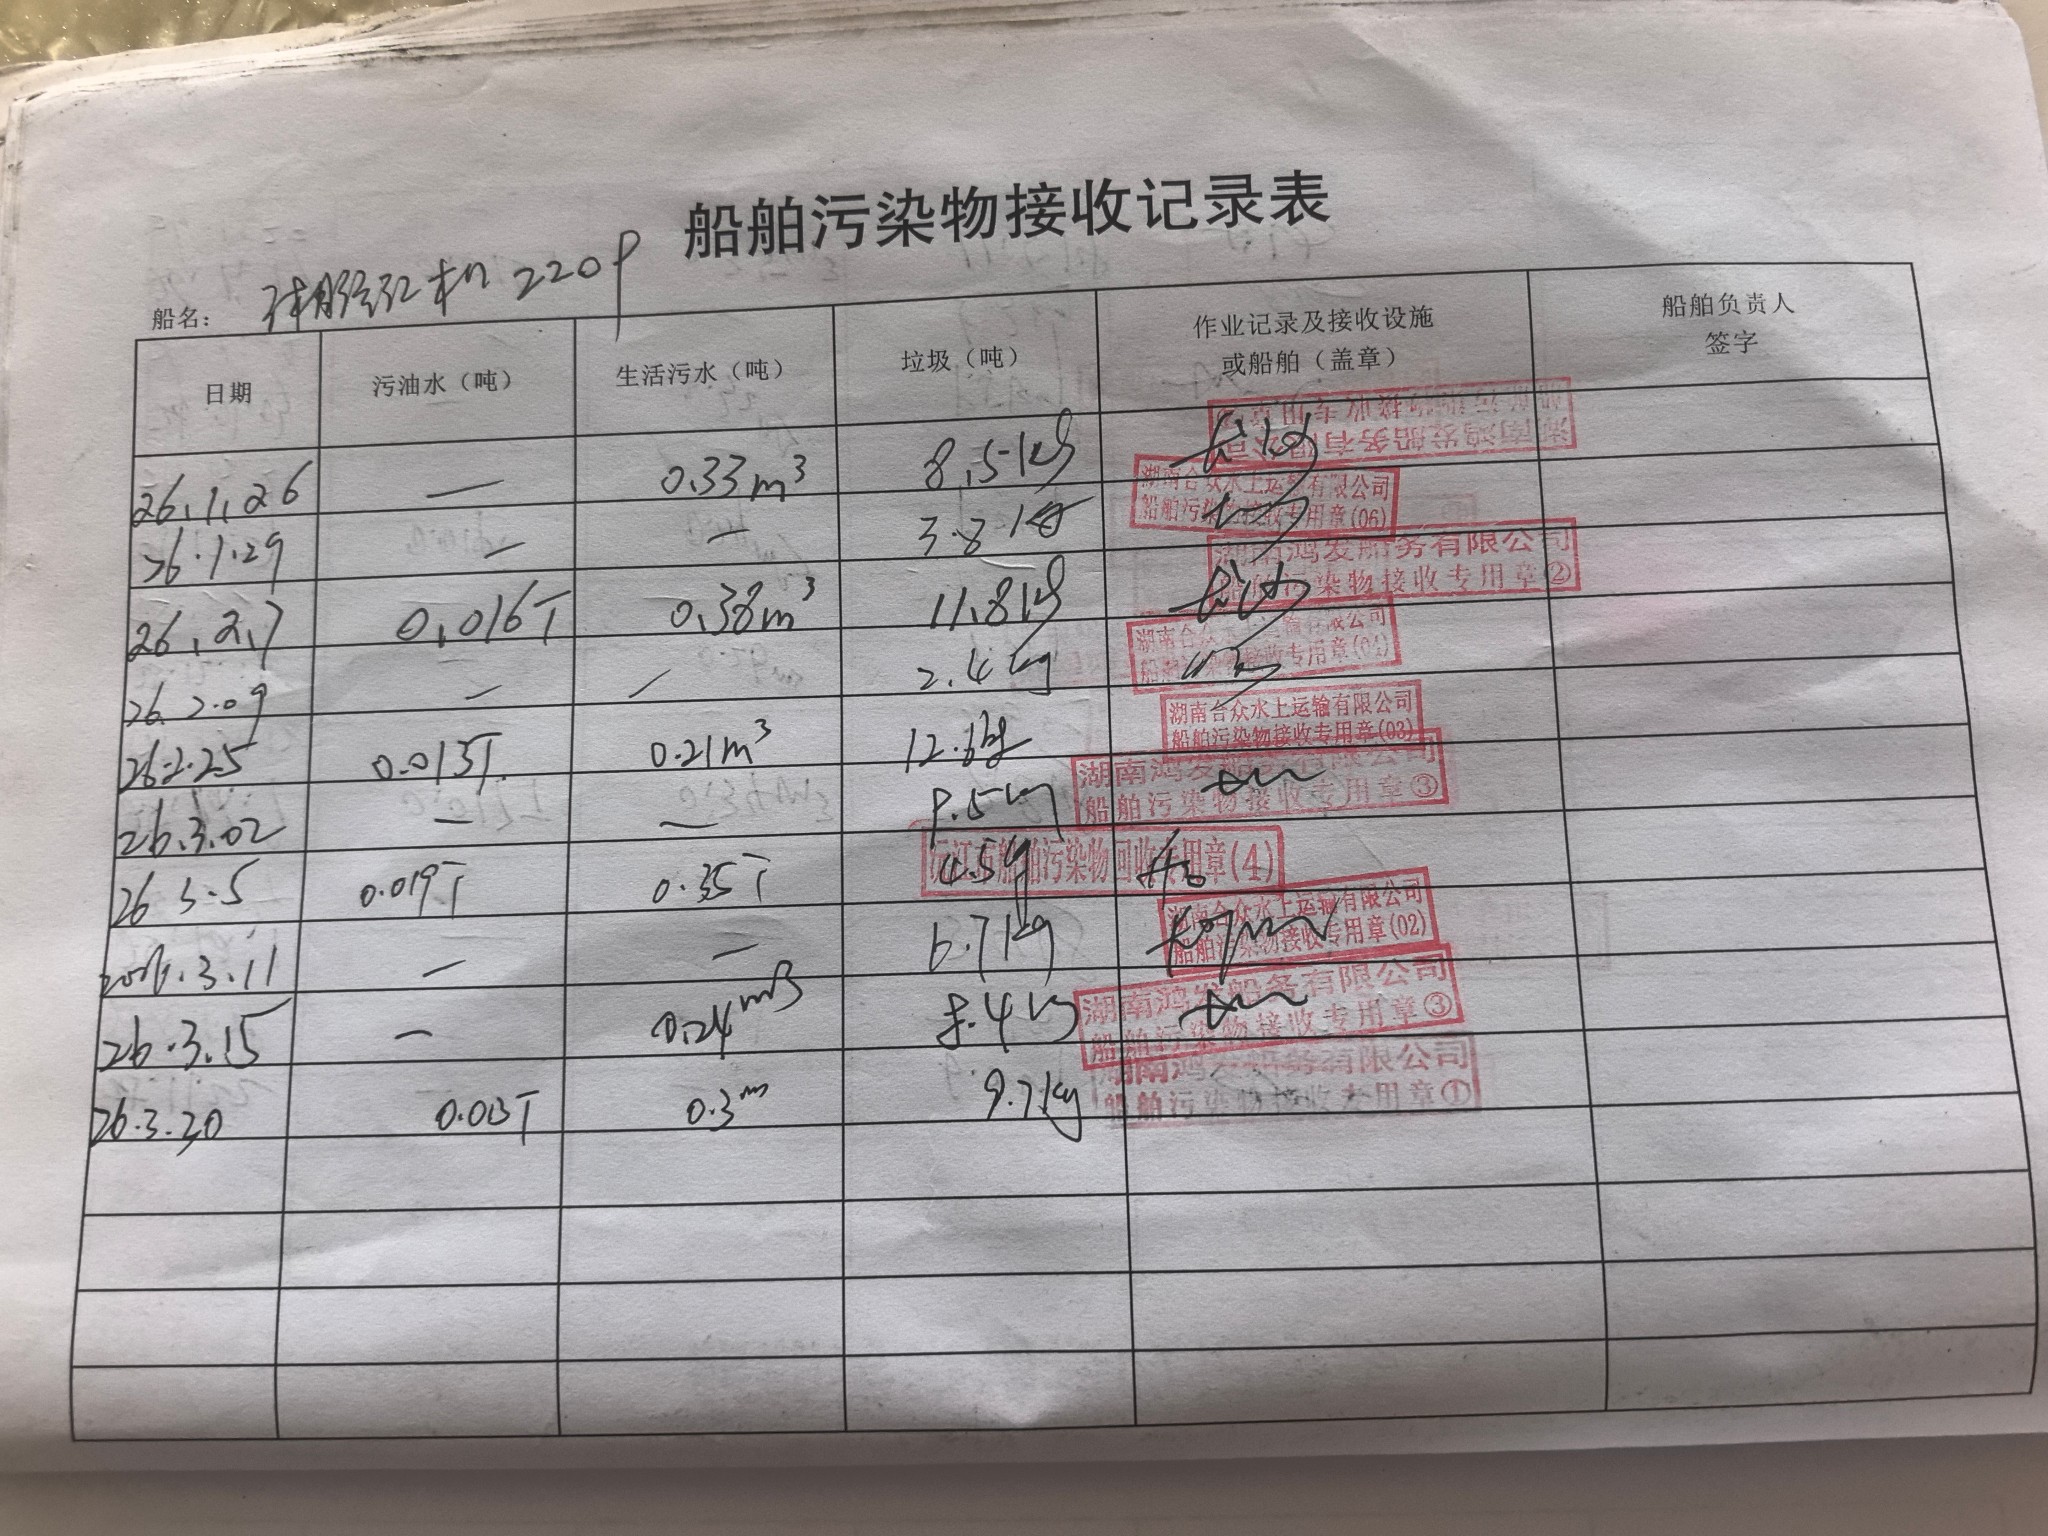 船舶污染物接收记录表
船名: 机 2209
日期 污油水（吨） 生活污水（吨） 垃圾（吨） 作业记录及接收设施或船舶（盖章） 船舶负责人签字
26,1,26 — 0.33m³ 8.5kg
湖南鸿发船务有限公司
船舶污染物接收专用章
26.1.29 — — 3.8kg
湖南合众水上运输有限公司
船舶污染物接收专用章(06)
26,2,7 0,016T 0.38m³ 11.8kg
湖南鸿发船务有限公司
船舶污染物接收专用章②
26.2.09 — — 2.4kg
湖南合众水上运输有限公司
船舶污染物接收专用章(04)
26.2.25 0.013T 0.21m³ 12.6kg
湖南合众水上运输有限公司
船舶污染物接收专用章(03)
26.3.02 — — 8.5kg
湖南鸿发船务有限公司
船舶污染物接收专用章③
26 3.5 0.019T 0.35T 4.5kg
沅江市船舶污染物回收专用章(4)
2026.3.11 — — 6.7kg
湖南合众水上运输有限公司
船舶污染物接收专用章(02)
26.3.15 — 0.24m3 8.4kg
湖南鸿发船务有限公司
船舶污染物接收专用章③
26.3.20 0.013T 0.3m 9.7kg
湖南鸿发船务有限公司
船舶污染物接收专用章①